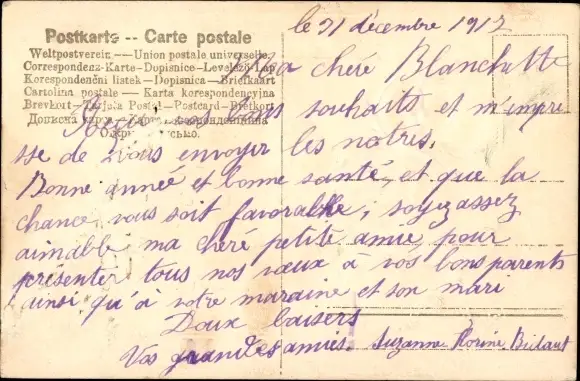 Postkarte -- Carte postale
Weltpostverein — Union postale universelle
Correspondenz-Karte - Dopisnice - Levelező-Lap
Korespondenční listek - Dopisnica - Briefkaart
Cartolina postale - Karta korespondencyjna
Brevkort - Tarjeta Postal - Postcard - Brefkort
Дописна
le 31 décembre 1912
Ma chère Blanchette
Reçu vos bons souhaits et m'empre
sse de vous envoyer les notres.
Bonne année et bonne santé, et que la
chance vous soit favorable; soyez assez
aimable ma chère petite amie, pour
présenter tous nos vœux à vos bons parents
ainsi qu'à votre maraine et son mari
Doux baisers
Vos grandes amies. Suzanne